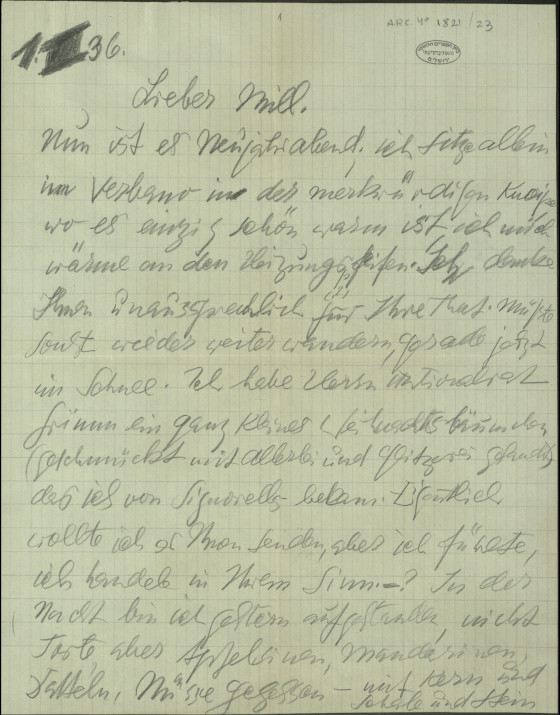 1
ARC. 4° 1821 / 23
1. 36.
Lieber Mill.
Nun ist es Neujahrabend, ich sitze allein
im Verbano in der merkwürdigen Kneipe
wo es einzig schön warm ist, ich mich
wärme an den Heizungspfeifen. Ich danke
Ihnen unaussprechlich für Ihre That. Müßte
sonst wieder weiterwandern, gerade jetzt
im Schnee. Ich habe Herrn Nationalrat
Grimm ein ganz kleines Weihnachtsbäumchen
(geschmückt mit allerlei und Glitzerei gesandt,
das ich von Signorella bekam. Eigentlich
wollte ich es Ihnen senden, aber ich fühlte,
ich handele in Ihrem Sinn–? In der
Nacht bin ich gestern aufgestanden, nicht
Torte aber Apfelsinen, Mandarinen,
Datteln, Nüsse gegessen – mit Kern und
Schale und Stein